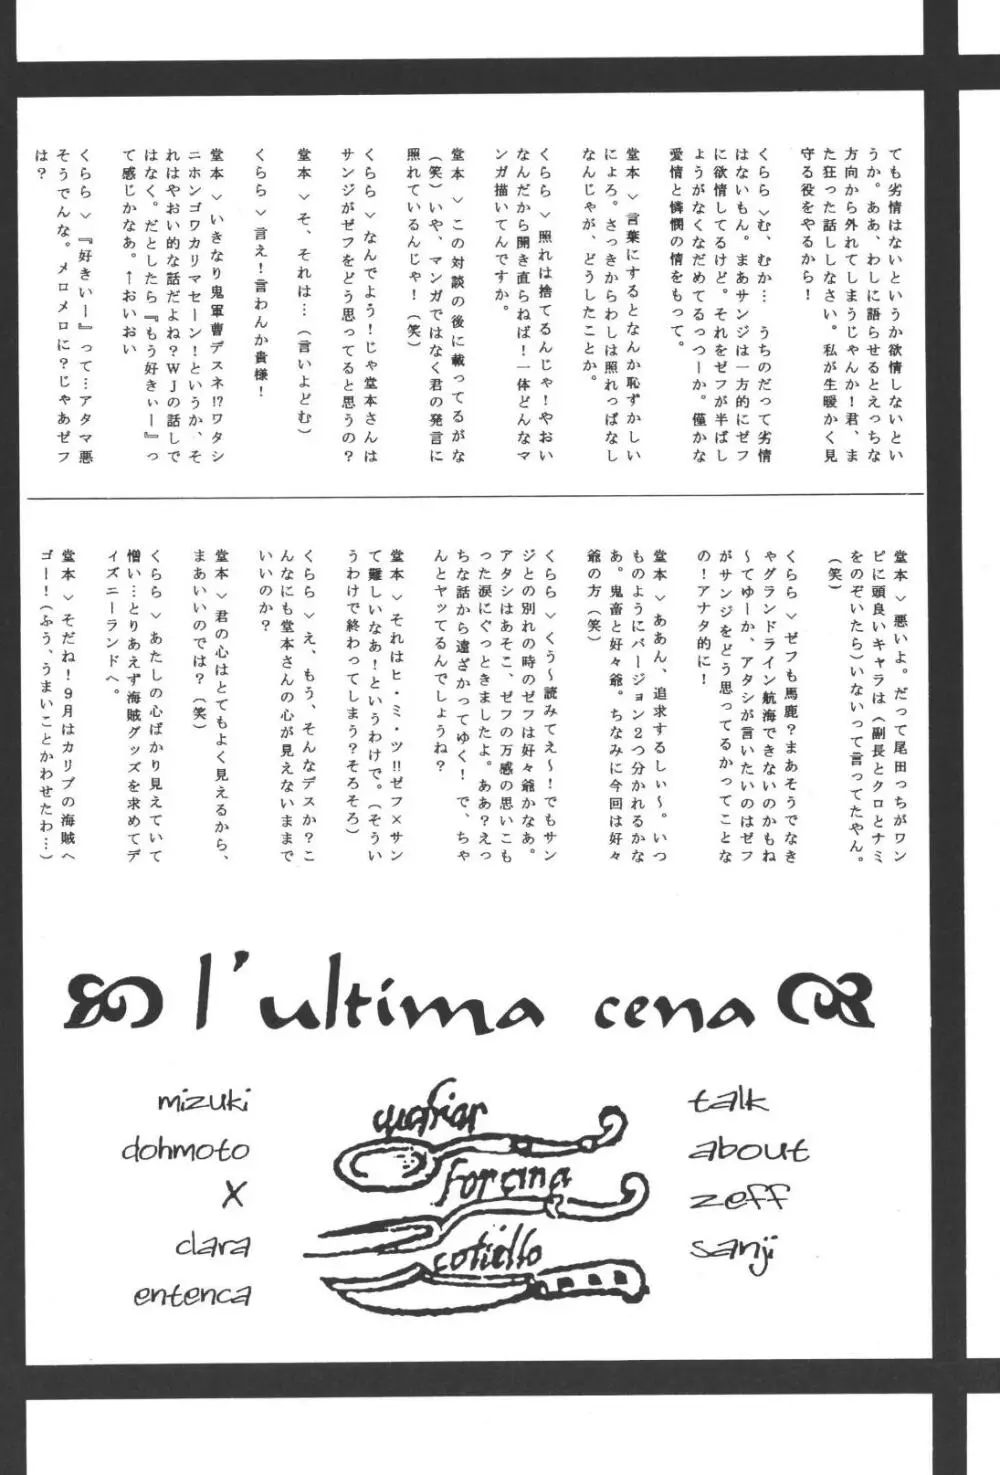 ても劣情はないというか欲情しないとい
うか。ああ、わしに語らせるとえっちな
方向から外れてしまうじゃんか！君、ま
た狂った話ししなさい。私が生暖かく見
守る役をやるから！
くらら＞む、むか… うちのだって劣情
はないもん。まあサンジは一方的にゼフ
に欲情してるけど。それをゼフが半ばし
ょうがなくなだめてるっつーか。僅かな
愛情と憐憫の情をもって。
堂本＞言葉にするとなんか恥ずかしい
にょろ。さっきからわしは照れっぱなし
なんじゃが、どうしたことか。
くらら＞照れは捨てるんじゃ！やおい
なんだから開き直らねば！一体どんなマ
ンガ描いてんですか。
堂本＞この対談の後に載ってるがな
（笑）いや、マンガではなく君の発言に
照れているんじゃ！（笑）
くらら＞なんでよう！じゃ堂本さんは
サンジがゼフをどう思ってると思うの？
堂本＞そ、それは…（言いよどむ）
くらら＞言え！言わんか貴様！
堂本＞いきなり鬼軍曹デスネ!?ワタシ
ニホンゴワカリマセーン！というか、そ
れはやおい的な話だよね？ＷＪの話しで
はなく。だとしたら『もう好きぃー』っ
て感じかなあ。←おいおい
くらら＞『好きいー』って…アタマ悪
そうでんな。メロメロに？じゃあゼフ
は？
堂本＞悪いよ。だって尾田っちがワン
ピに頭良いキャラは（副長とクロとナミ
をのぞいたら）いないって言ってたやん。
（笑）
くらら＞ゼフも馬鹿？まあそうでなき
ゃグランドライン航海できないのかもね
～てゆーか、アタシが言いたいのはゼフ
がサンジをどう思ってるかってことな
の！アナタ的に！
堂本＞ああん、追求するしぃ～。いつ
ものようにバージョン２つ分かれるかな
あ。鬼畜と好々爺。ちなみに今回は好々
爺の方（笑）
くらら＞くう～読みてえ～！でもサン
ジとの別れの時のゼフは好々爺かなあ。
アタシはあそこ、ゼフの万感の思いこも
った涙にぐっときましたよ。ああ？えっ
ちな話から遠ざかってゆく！で、ちゃ
んとヤッてるんでしょうね？
堂本＞それはヒ・ミ・ツ!!ゼフ×サン
て難しいなあ！というわけで。（そうい
うわけで終わってしまう？そろそろ）
くらら＞え、もう、そんなデスか？こ
んなにも堂本さんの心が見えないままで
いいのか？
堂本＞君の心はとてもよく見えるから、
まあいいのでは？（笑）
くらら＞あたしの心ばかり見えていて
憎い…とりあえず海賊グッズを求めてデ
ィズニーランドへ。
堂本＞そだね！９月はカリブの海賊へ
ゴー！（ふう、うまいことかわせたわ…）
l'ultima cena
mizuki
dohmoto
X
clara
entenca
forcina
coltello
talk
about
zeff
sanji